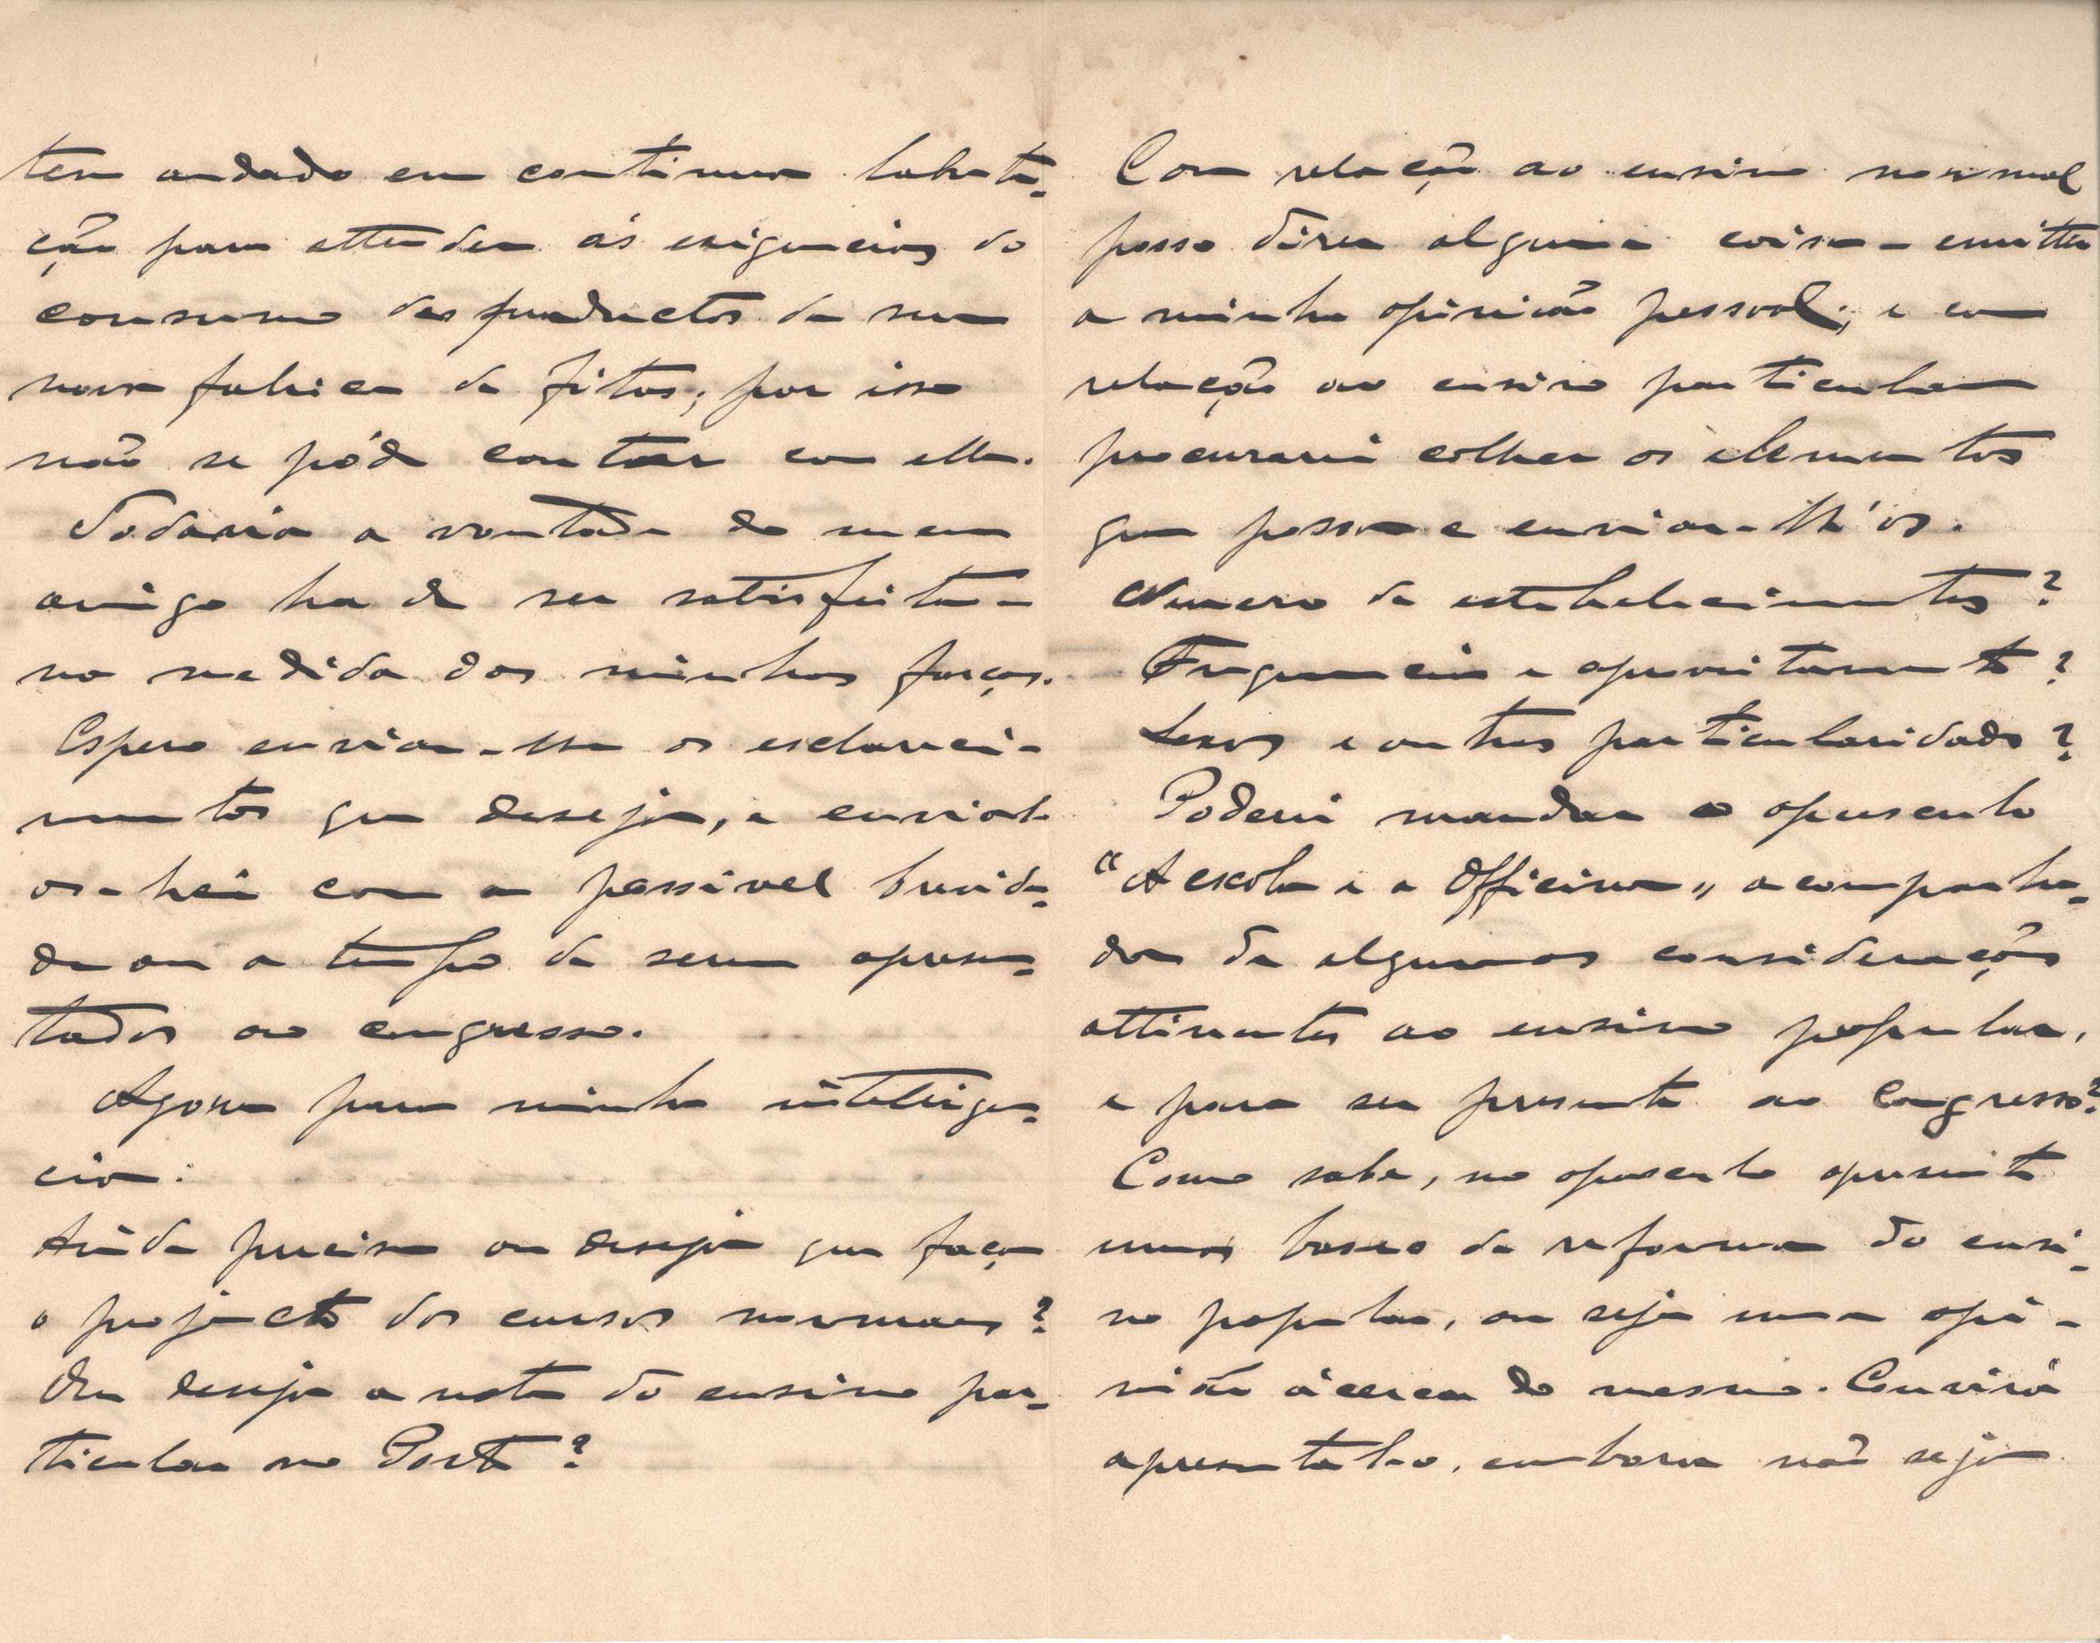 tem andado em continua labuta-
ção para attender ás exigencias do
consumo dos productos da sua
nova fabrica de fitas; por isso
não se póde contar com elle.
Todavia a vontade do meu
amigo ha de ser satisfeita -
na medida das minhas forças.
Espero enviar-lhe os esclareci-
mentos que deseja, e enviar-l-
os-hei com a possivel brevida-
de ou a tempo de serem apresen-
tados ao congresso.
Agora para minha intelligen-
cia:
Ainda precisa ou deseja que faça
o projecto dos cursos normaes?
Ou deseja a nota do ensino par-
ticular no Porto?
Com relação ao ensino normal
posso dizer alguma coisa - emittir
a minha opinião pessoal; e com
relação ao ensino particular
procurarei colher os elementos
que possa e enviar-lh'os.
Numero de estabelecimentos?
Frequencia e aproveitamento?
Sexos e outras particularidades?
Poderei mandar o opusculo
"A escola e a Officina" acompanha-
do de algumas considerações
attinentes ao ensino popular,
e para ser presente ao Congresso?
Como sabe, no opusculo apresento
umas bases de reforma do ensi-
no popular, ou seja uma opi-
nião ácerca do mesmo. Convirá
apresental-o, embora não seja